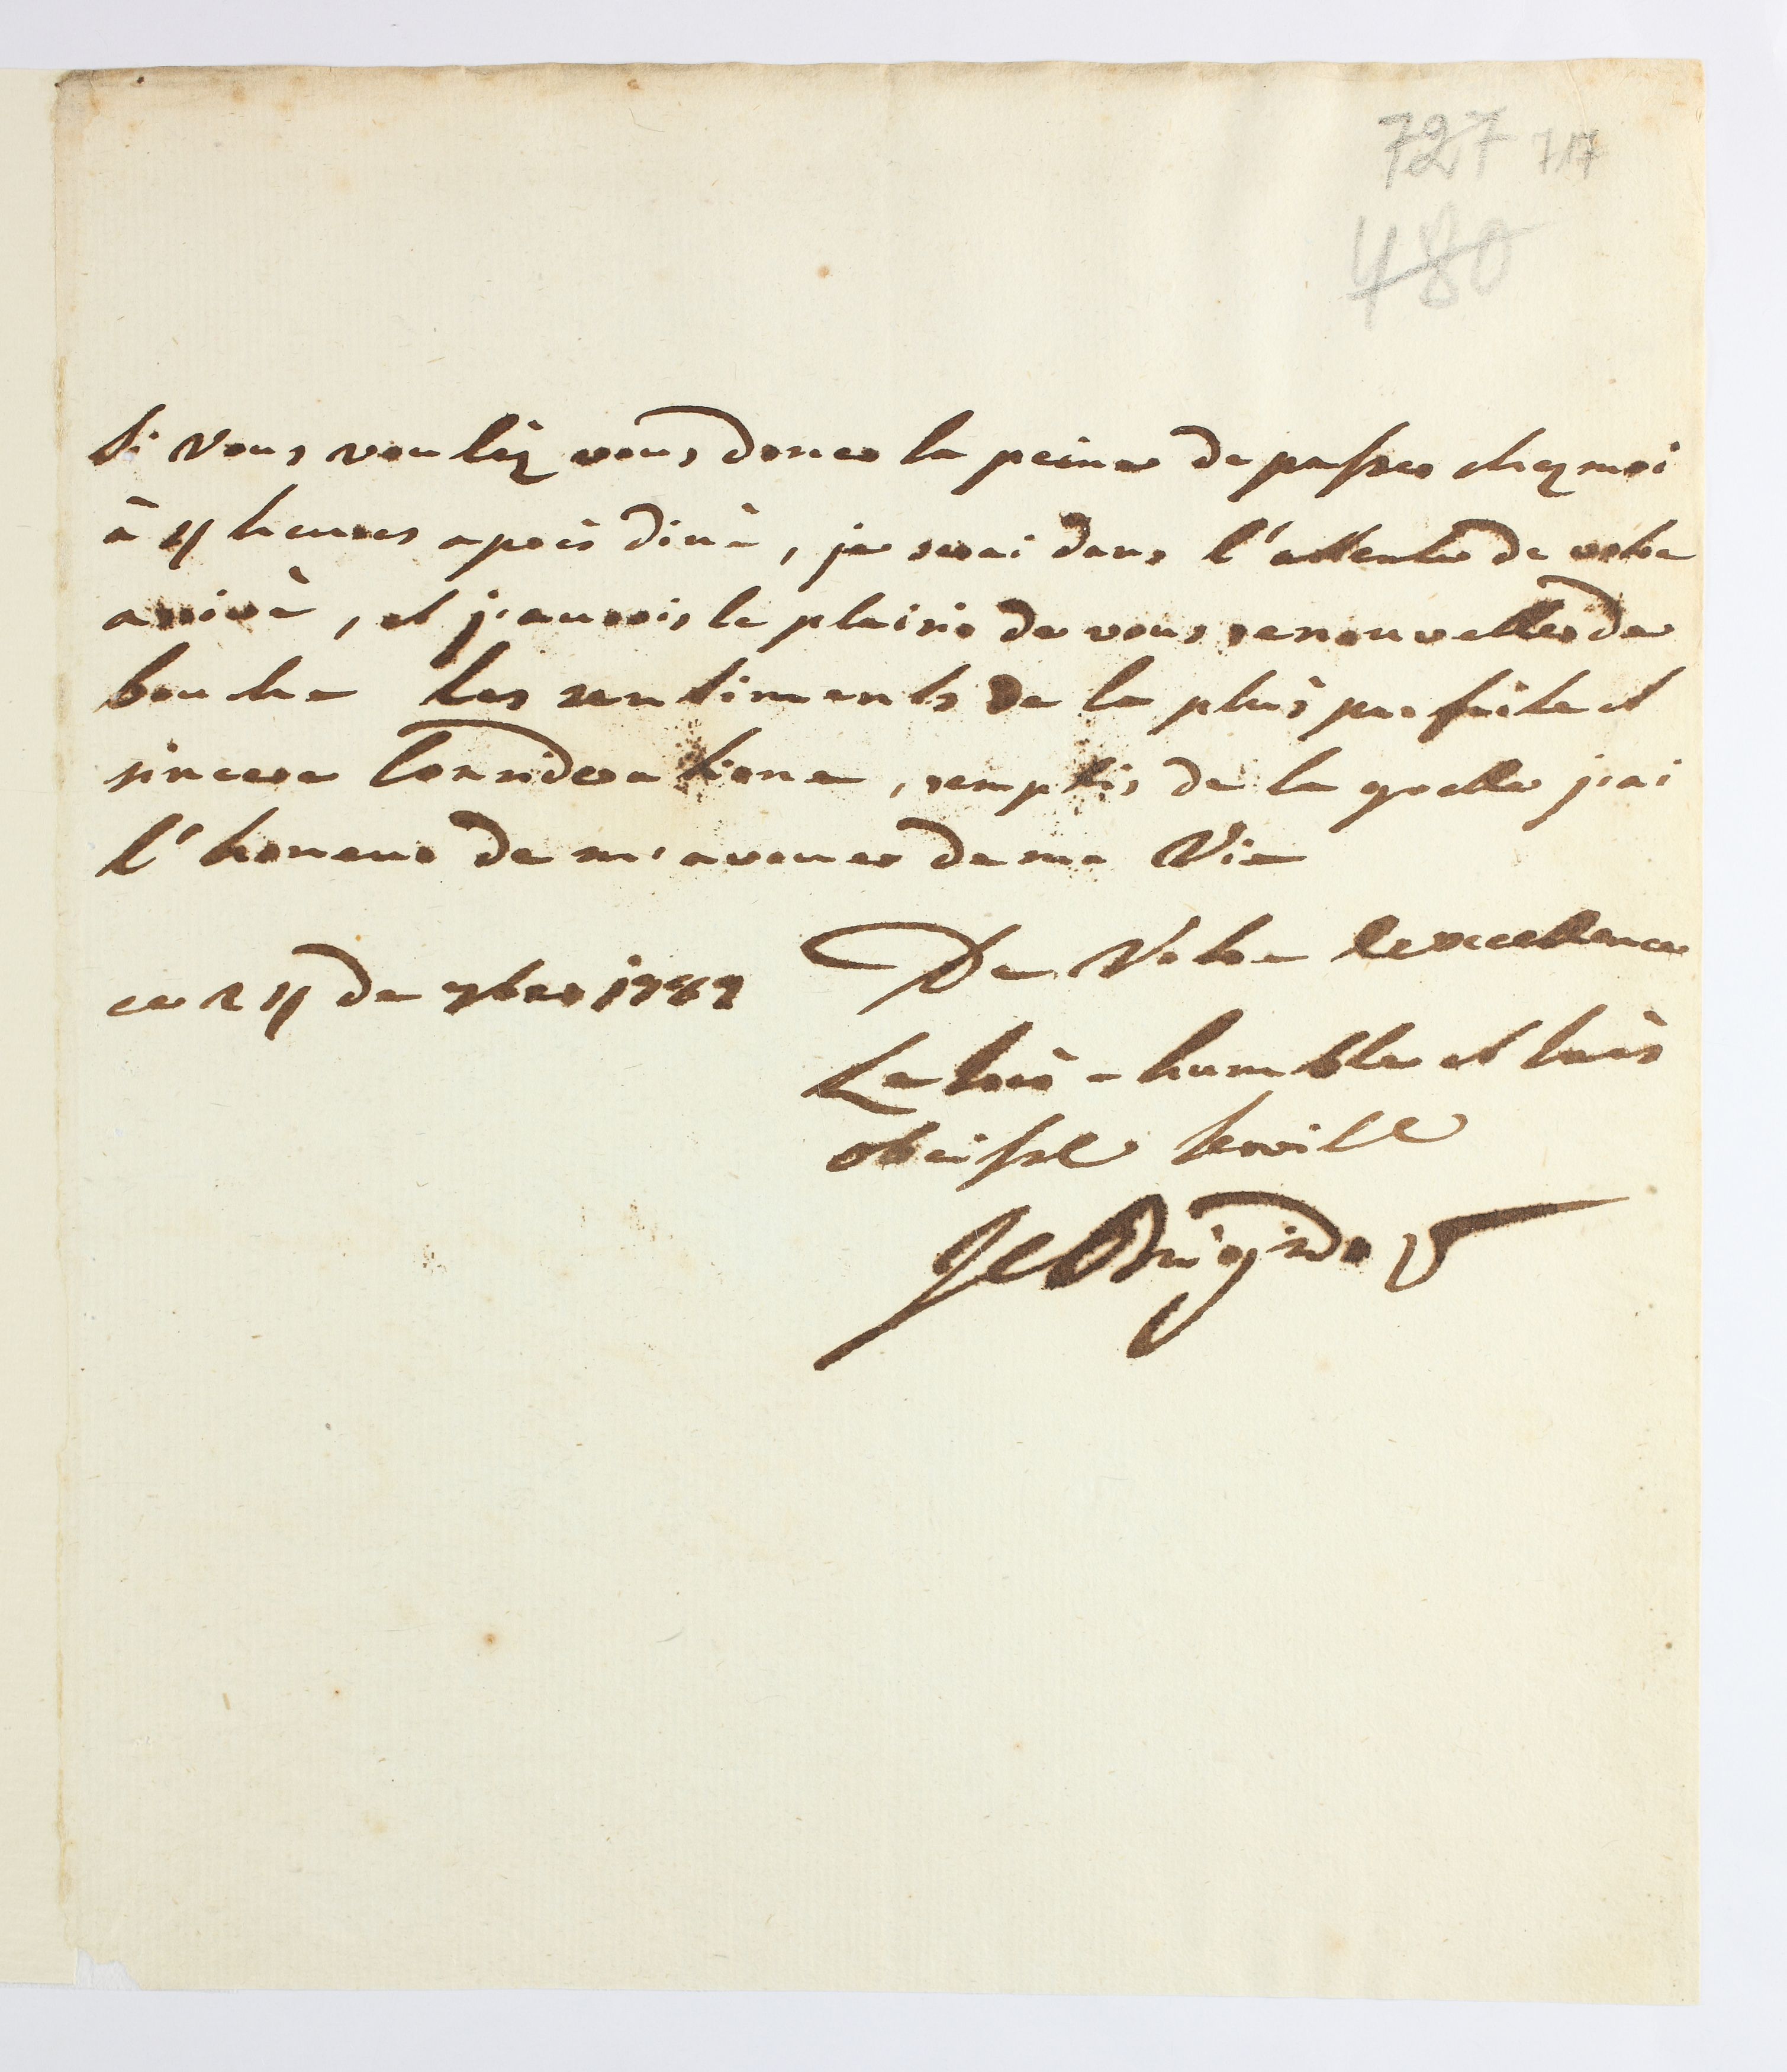 727 717
480
Si Vous vouliéz vous doner la peine de passer chez moi
à 4 heures aprés diné, je serai dans l'attente de votre
arivè, et j'aurois le plaisir de vous renouveller de
bouche les sentiments de la plus parfaite et
sincere Considerationne, remplis de la quelle j'ai
l'honeur de m'avouer de ma Vie
De Votre Excellence
ce 24 de 7bre 1782
Le très-humble et très
obeisst servitr
Brigido